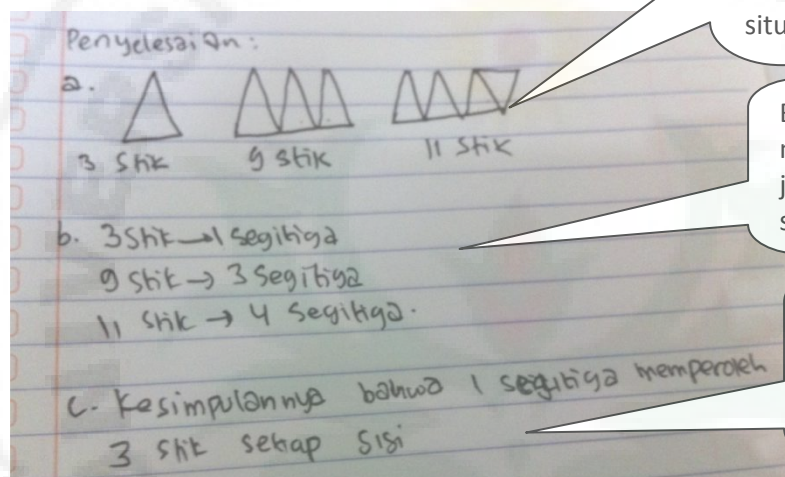 Penyelesaian :
a.
3 Stik 9 stik 11 stik
b. 3 Stik → 1 segitiga
9 stik → 3 segitiga
11 stik → 4 segitiga.
c. Kesimpulannya bahwa 1 segitiga memperoleh
3 stik setiap sisi
situ